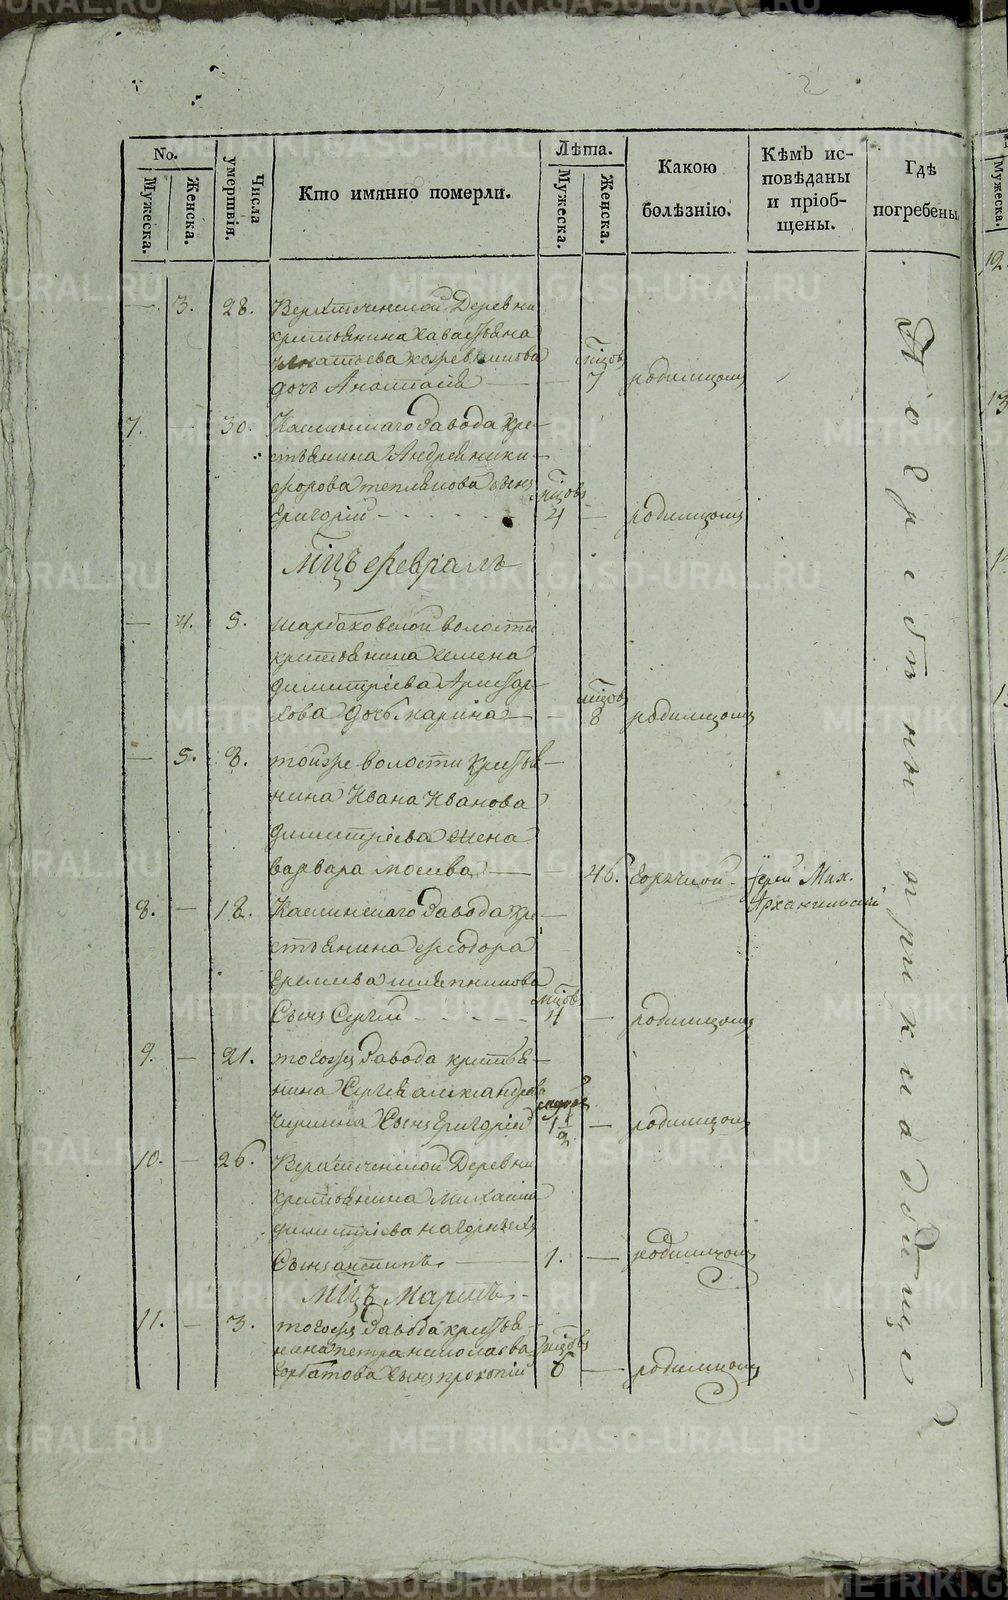 No.
Мужеска.
Женска.
Числа умершвія.
Кто имянно померли.
Лѣта.
Мужеска.
Женска.
Какою болѣзнію.
Кѣмъ исповѣданы и пріобщены.
Гдѣ погребены.
— 3. 28. Верхтеченской Деревни
крестьянина Савастьяна
Игнатьева
дочь Анастасия — — мцовъ 7 родимцомъ
7. — 30. Каслинскаго Завода кре-
стьянина Андрея Ники-
форова теплякова сынъ
Григорій мцовъ 4 — родимцомъ
Мцъ февраль
— 4. 5. шарбаковской волости
крестьянина Семена
Димитріева Аристар-
хова дочь марина — — мцовъ 8 родимцомъ
— 5. 8. тойже волости крестья-
нина Ивана Иванова
димитріева жена
варвара — — 46. Горячкой Іерей Мих. Архангельскій
8. — 12. Каслинскаго Завода кре-
стьянина феодора
шляпникова
Сынъ Сергій мцовъ 4 — родимцомъ
9. — 21. тогожъ Завода крестья-
нина Сергея александрова
Сынъ Григорій 1 1/2 — родимцомъ
10. — 26. Верхтеченской Деревни
крестьянина Михаила
димитріева нагорныхъ
Сынъ антипъ — 1. — родимцомъ
Мцъ Мартъ
11. — 3. тогожъ Завода крестья-
нина петра николаева
горбатова Сынъ прокопій мцовъ 6 — родимцомъ
При кладбище
Мужеска.
12.
13
METRIKI.GASO-URAL.RU